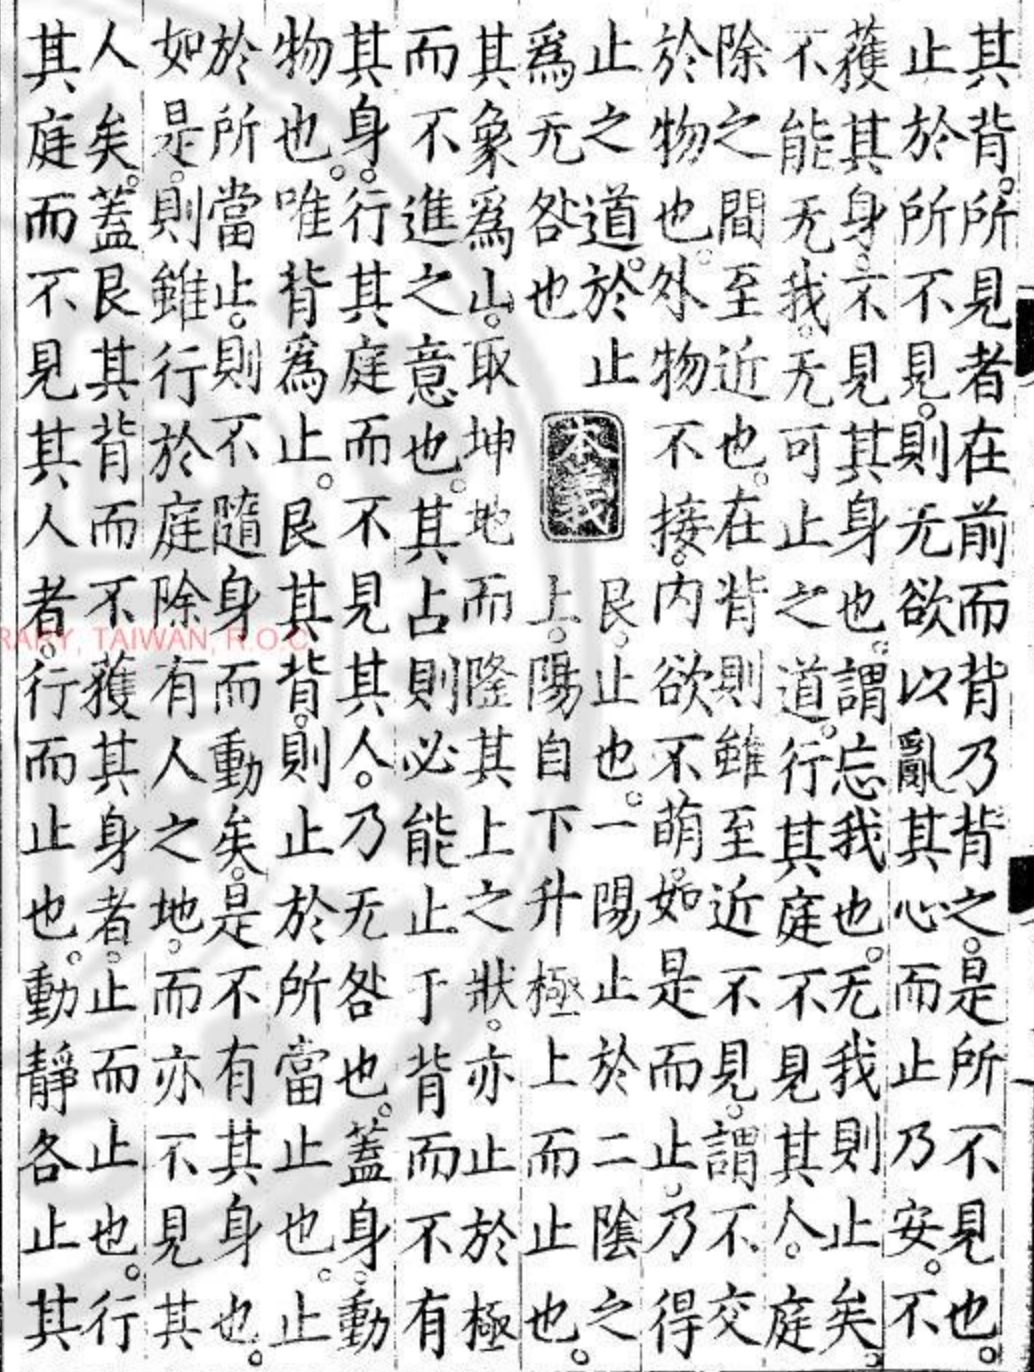 其背。所見者在前而背乃背之。是所不見也。
止於所不見。則无欲以亂其心而止乃安。不
獲其身。不見其身也。謂忘我也。无我則止矣。
不能无我。无可止之道。行其庭不見其人。庭
除之間至近也。在背則雖至近不見。謂不交
於物也。外物不接。内欲不萌。如是而止。乃得
止之道。於止
爲无咎也
本義
艮。止也。一陽止於二陰之
上。陽自下升極上而止也。
其象爲山。取坤地而隆其上之狀。亦止於極
而不進之意也。其占則必能止于背而不有
其身。行其庭而不見其人。乃无咎也。蓋身動
物也。唯背爲止。艮其背。則止於所當止也。止
於所當止。則不隨身而動矣。是不有其身也。
如是。則雖行於庭除有人之地。而亦不見其
人矣。蓋艮其背而不獲其身者。止而止也。行
其庭而不見其人者。行而止也。動靜各止其
RARY, TAIWAN, R.O.C